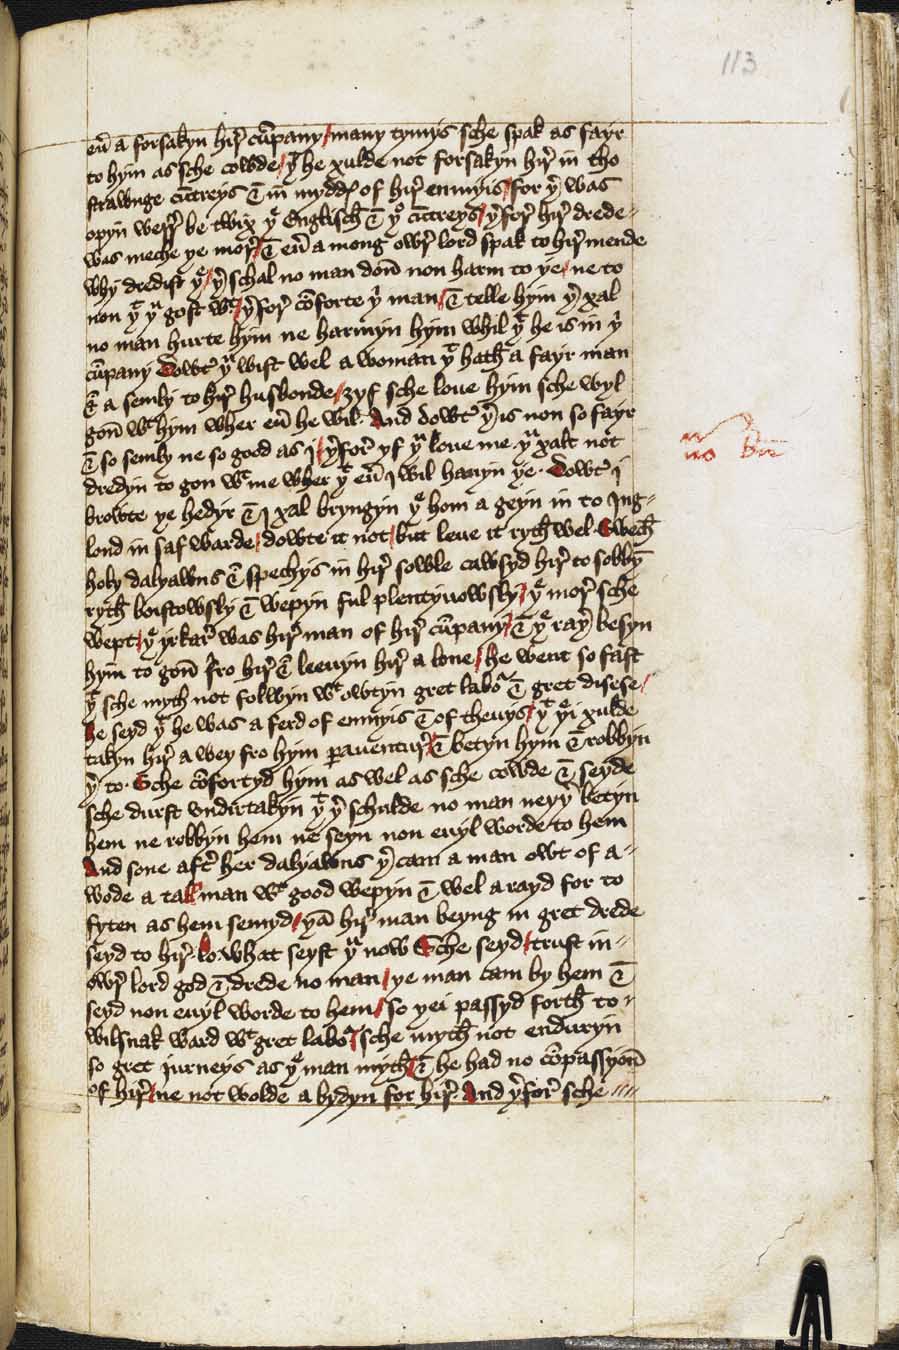 113
eu̅ a̅ forsakyn hir̛ cu̅pany / many tymys sche spak as fayr
to hym as sche cowde / yͭ he xulde not forsakyn hir̛ in tho
strawnge cu̅treys & in mydd of hir̛ enmyis / for yͤr was
opyn werr̛ be twix yͤ Englisch & yͦ cu̅treys / yͤrfor̛ hir̛ drede
was meche ye mor̛ / & eu̅ a mong owr̛ lord spak to hir̛ mende
why dredist yͧ / yͤr schal no man don̅ non harm to ye / ne to
non yͭ yͧ gost wͭ / yͤrfor̛ co̅forte yͥ man / & telle hym yͤr xal
no man hurte hym ne harmyn hym whil yͭ he is in yͥ
cu̅pany Dowtͬ yͧ wist wel a woman yͭ hath a fayr man
& a semly to hir̛ husbonde / ȝyf sche loue hym sche wyl
gon̅ wͭ hym wher eu̅ he wil. And dowtͬ yͤr is non so fayr
& so semly ne so good as j / yͤrfor̛ yf yͧ loue me yͧ xalt not
no
dredyn to gon wͭ me wher yͭ eu̅ j wil hauyn ye. Dowtͬ j
browte ye hedyr & j xal bryngyn yͤ hom a geyn in to Jng-
lond in saf warde / dowte it not / but leue it ryth wel. Swech
holy dalyawns & spechys in hir̛ sowle cawsyd hir̛ to sobby̅
ryth boistowsly & wepyn ful plentyuowsly / yͤ mor̛ sche
wept / yͤ yrkar̛ was hir̛ man of hir̛ cu̅pany / & yͤ rayͬ besyn
hym to gon̅ fro hir̛ & leeuyn hir̛ a lone / he went so fast
yͭ sche myth not folwyn wͭ owtyn gret labor̛ & gret disese /
He seyd yͭ he was a ferd of enmyis & of theuys / yͭ yͤi xulde
takyn hir̛ a wey fro hym ꝑauentur̛ / & betyn hym & robbyn
yͤr to. Sche co̅fortyd hym as wel as sche cowde & seyde
sche durst vndirtakyn yͭ yͤr schulde no man neyyͬ betyn
hem ne robbyn hem ne seyn non euyl worde to hem
And sone aftͬ her dalyawns yͤr cam a man owt of a-
wode a tal man wͭ good wepyn & wel a rayd for to
fyten as hem semyd / ya̅ hir̛ man beyng in gret drede
seyd to hir̛. lo. what seyst yͧ now Sche seyd / trust in-
owr̛ lord god & drede no man / ye man cam by hem &
seyd non euyl worde to hem / so yei passyd forth to-
wilsnak ward wͭ gret labor̛ / sche myth not enduryn
so gret jurneys as yͤ man myth / & he had no co̅passyon̅
of hir̛ / ne not wolde a bydyn for hir̛. And yͤrfor̛ sche